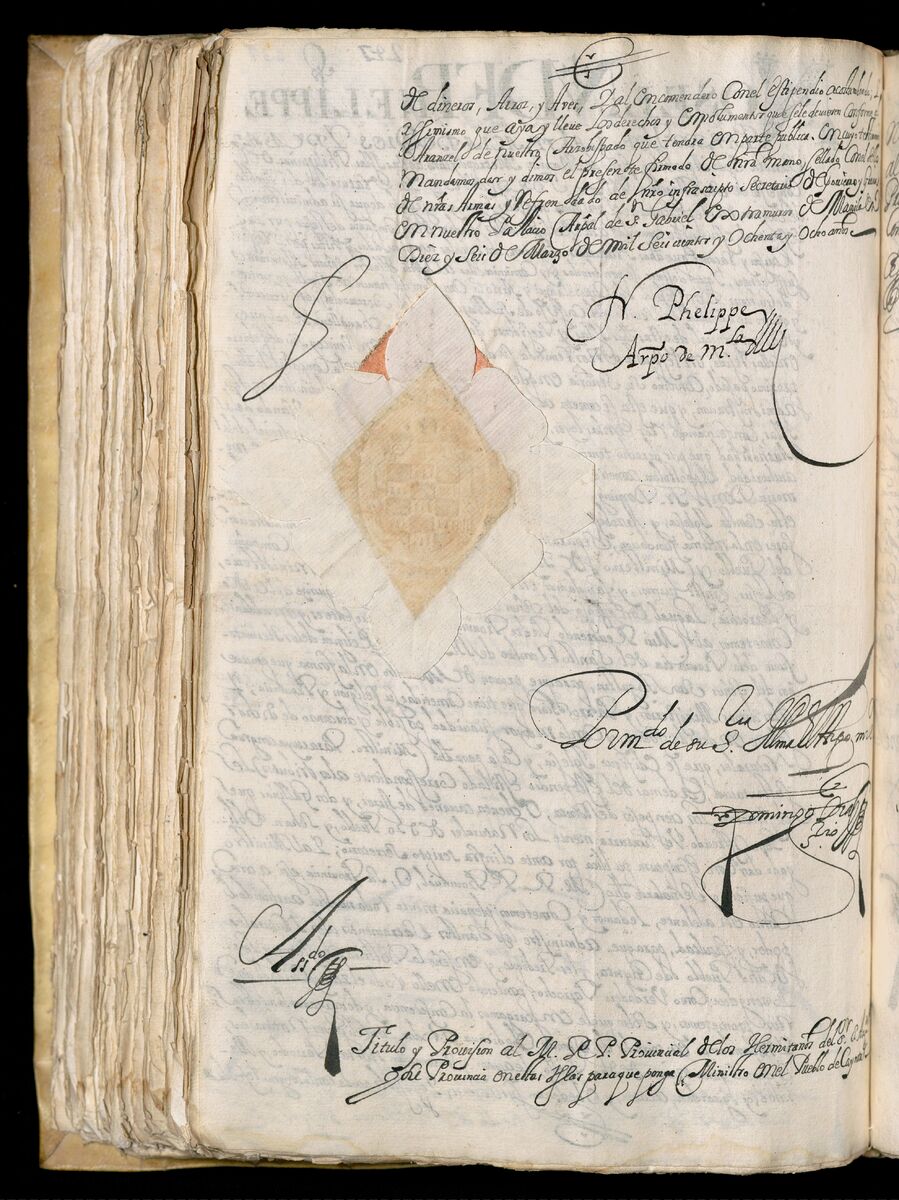 de dineros, Arroz, y Aves, y al Encomendero Con el estipendio acostumbrado,
assimismo que aya y lleve los derechos y Emolumentos que se le devieren Conforme a
el Aranzel de nuestro Arzobispado que tendra en parte publica, En cuyo
Mandamos dar y dimos el presente firmado de nrã mano, sellado Con el
de nrãs Armas y Refrendado de nrõ infrascripto Secretario de govierno y
en nuestro Palacio Arpal de S. Gabriel Extramuros de Manila En
Diez y Seis de Marzo de Mil Seiscientos y Ochenta y Ocho años
N. Phelippe
Arpo de Mla
Por mdo de su Sria Illma el Arpo mi
Domingo
Assdo
Titulo y Provision al M. R. P. Provincial de los Hermitaños del Sor S.
de Provincia en estas Yslas para que ponga Ministro en el Pueblo de